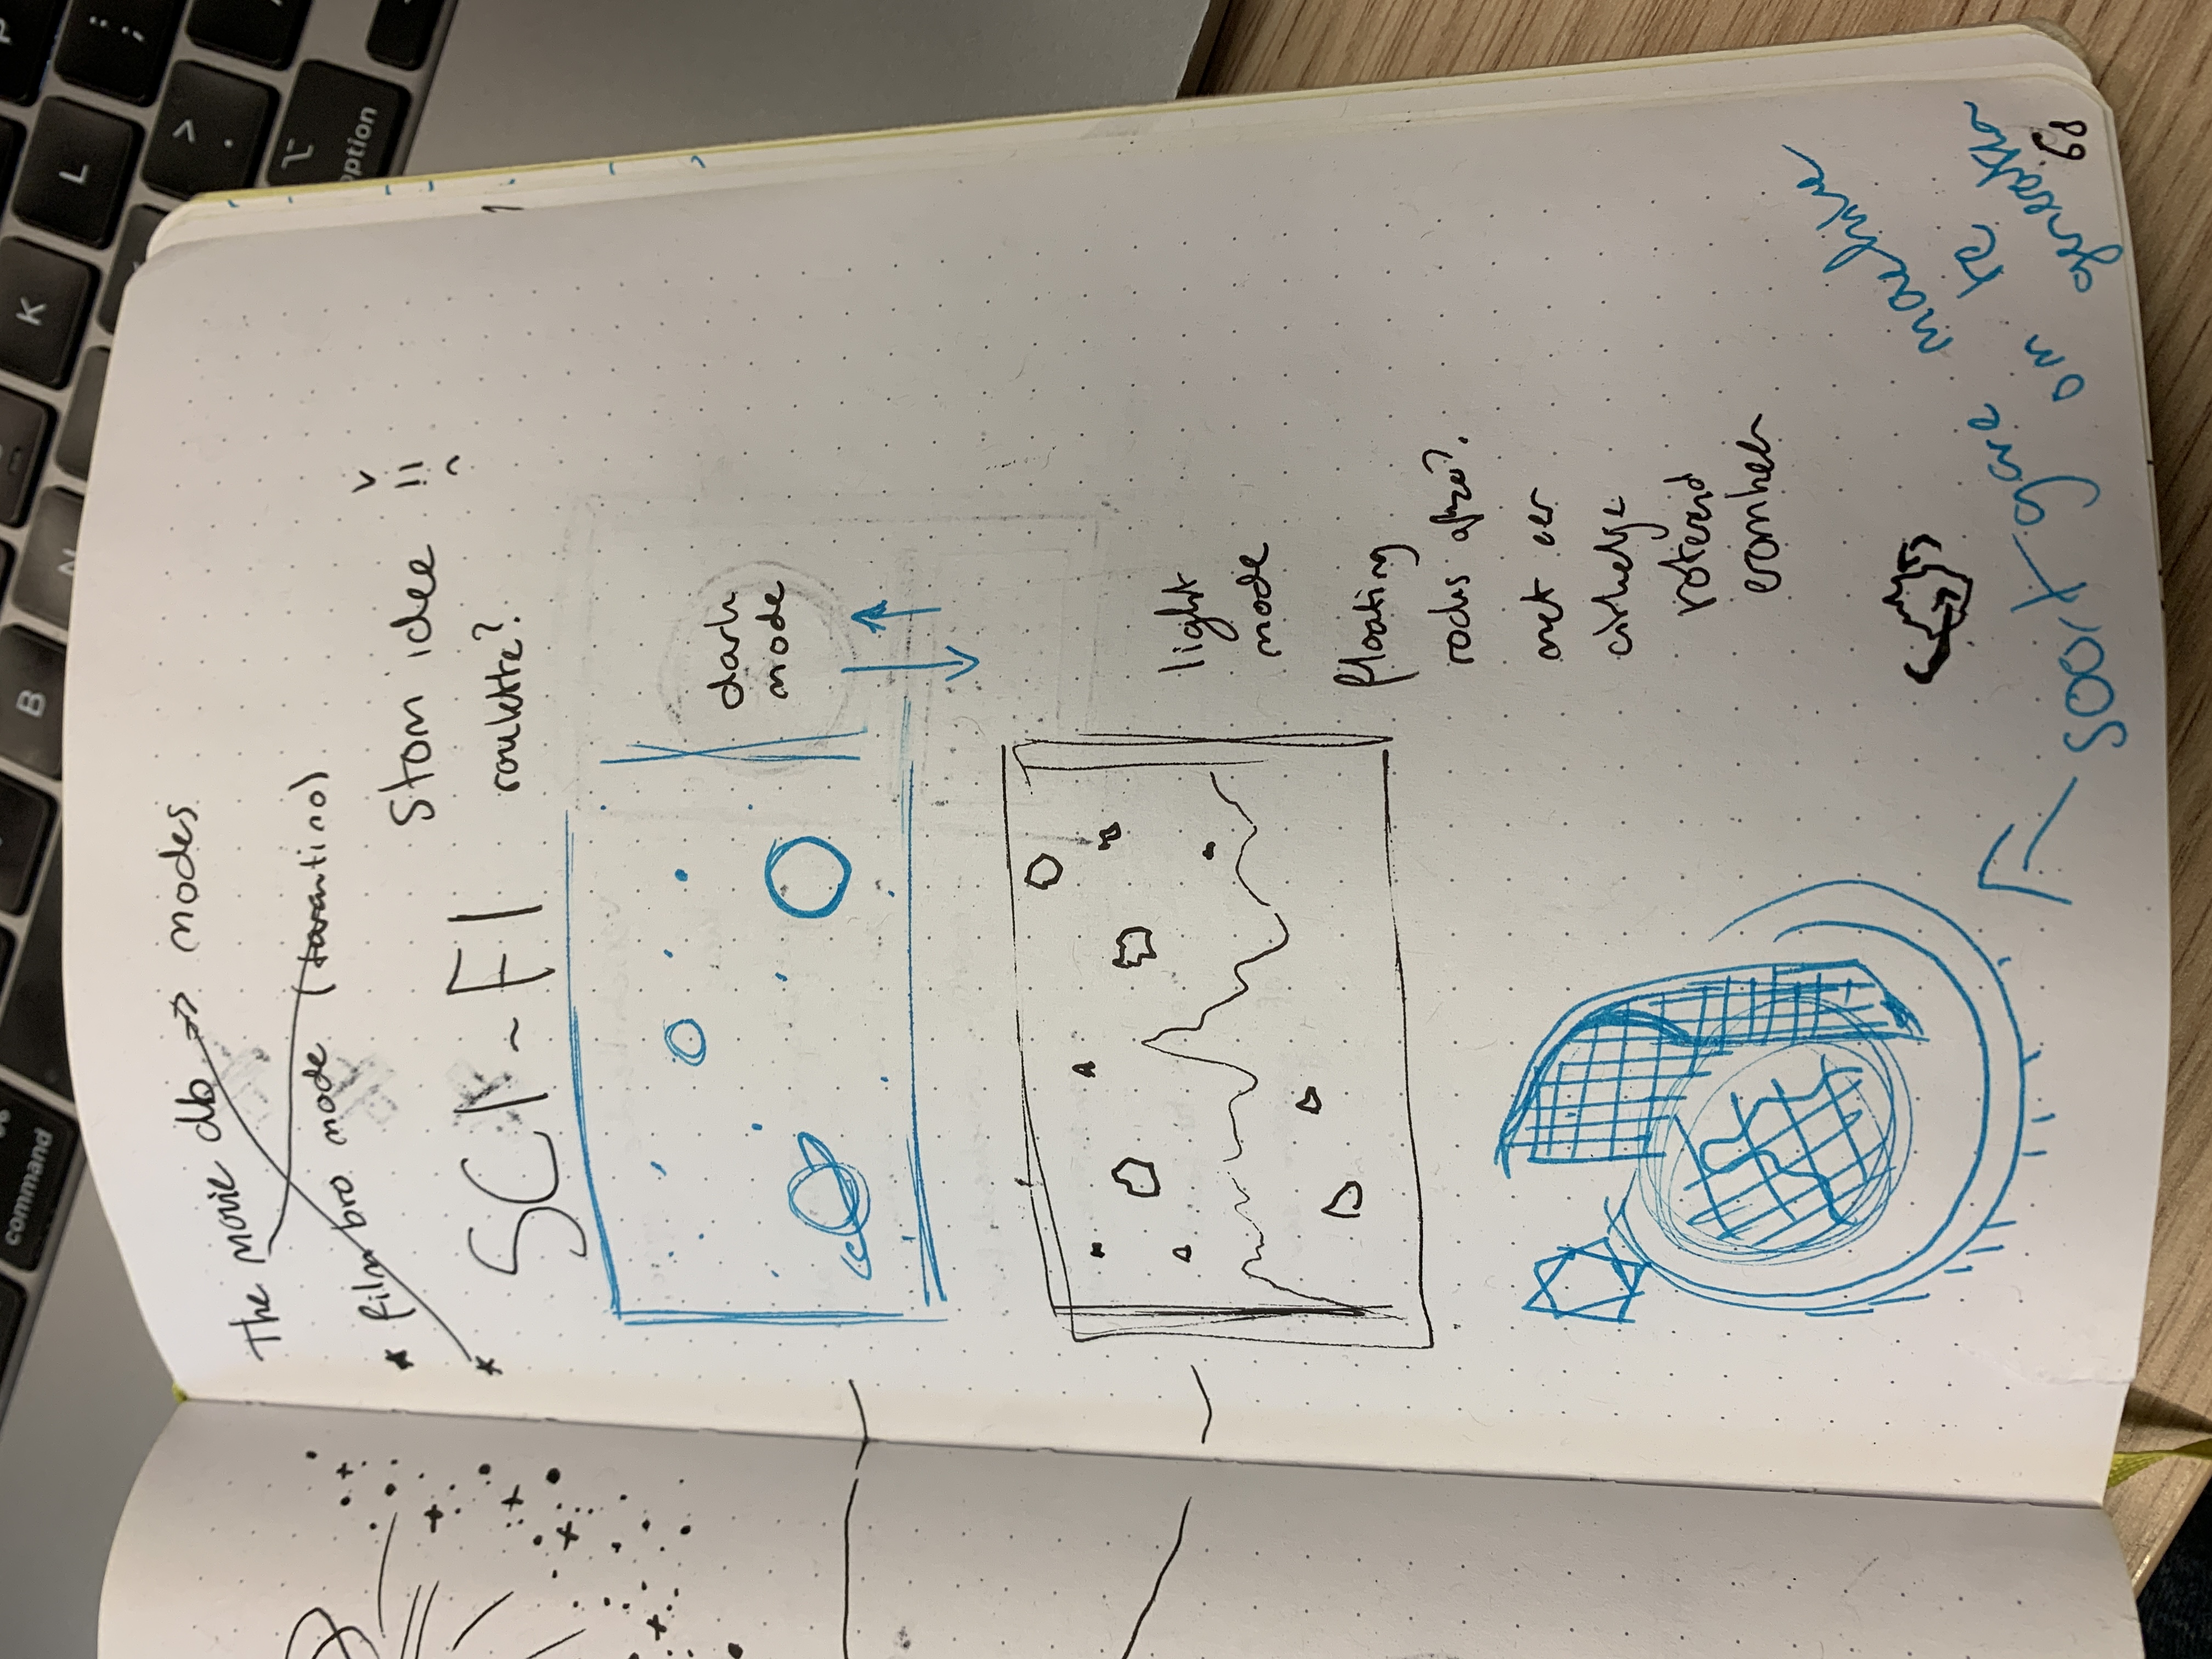 command
B
N
K
L
;
>
.
option
The movie db => modes
* film bro mode (tarantino)
*
Stom idee !!
SCI-FI
roulette?
dark
mode
light
mode
floating
rocks ofzo?
met eer
cirkelge
roterend
eromheen
soort gare machine
om te
generaten
68